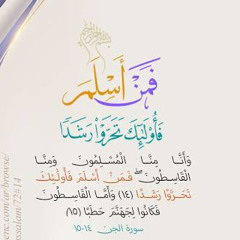 فَمَنْ أَسْلَمَ
فَأُوْلَٰٓئِكَ تَحَرَّوْاْ رَشَدٗا
وَأَنَّا مِنَّا الْمُسْلِمُونَ وَمِنَّا
الْقَاسِطُونَ ۖ فَمَنْ أَسْلَمَ فَأُولَٰئِكَ
تَحَرَّوْا رَشَدًا (١٤) وَأَمَّا الْقَاسِطُونَ
فَكَانُوا لِجَهَنَّمَ حَطَبًا (١٥)
سورة الجن ١٤-١٥